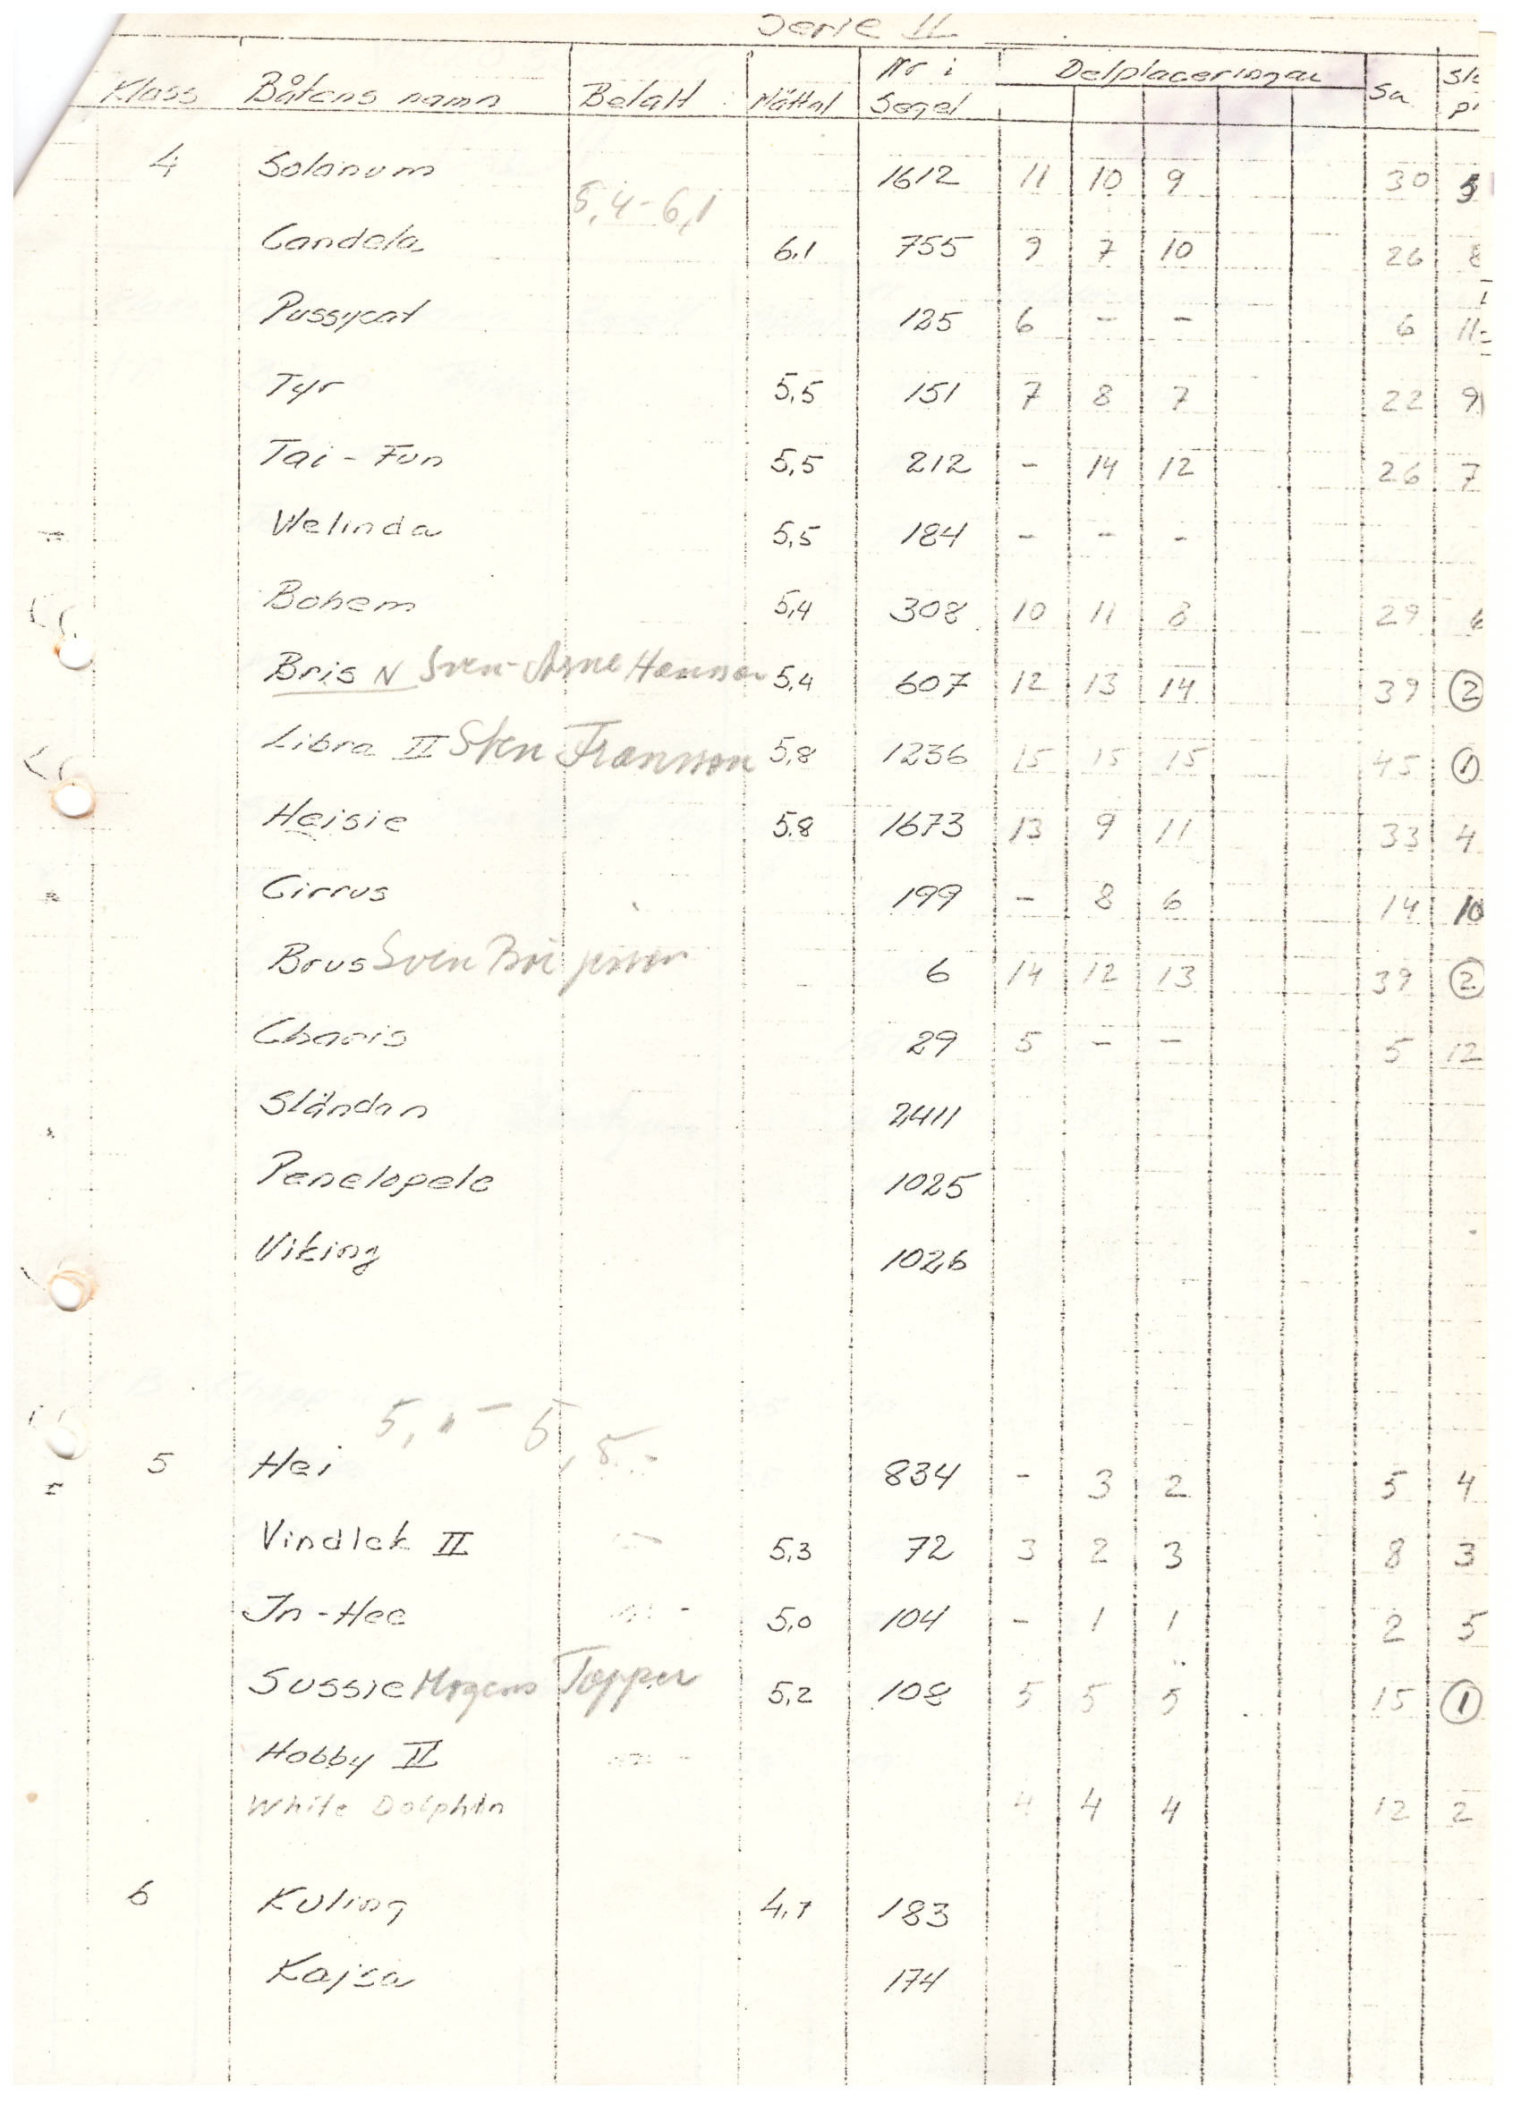 Serie II
Klass Båtens namn Betalt Mättal Nr i Segel Delplaceringar Sa
4 Solanum 1612 11 10 9 30 5
5,4-6,1
Candela 6,1 755 9 7 10 26 8
Pussycat 125 6 - - 6 11
Tyr 5,5 151 7 8 7 22 9
Tai-Fun 5,5 212 - 14 12 26 7
Welinda 5,5 184 - - -
Bohem 5,4 308 10 11 8 29 6
Bris N Sven-Arne Hansson 5,4 607 12 13 14 39 2
Libra II Sten Fransson 5,8 1236 15 15 15 45 1
Heisie 5.8 1673 13 9 11 33 4
Cirrus 199 - 8 6 14 10
Brus Sven Börjesson 6 14 12 13 39 2
Charis 29 5 - - 5 12
Sländan 2411
Penelopele 1025
Viking 1026
5 Hei 834 - 3 2 5 4
Vindlek II 5,3 72 3 2 3 8 3
In-Hee 5,0 104 - 1 1 2 5
Sussie Mogens Topper 5,2 108 5 5 5 15 1
Hobby II
White Dolphin 4 4 4 12 2
6 Kuling 4,7 183
Kajsa 174